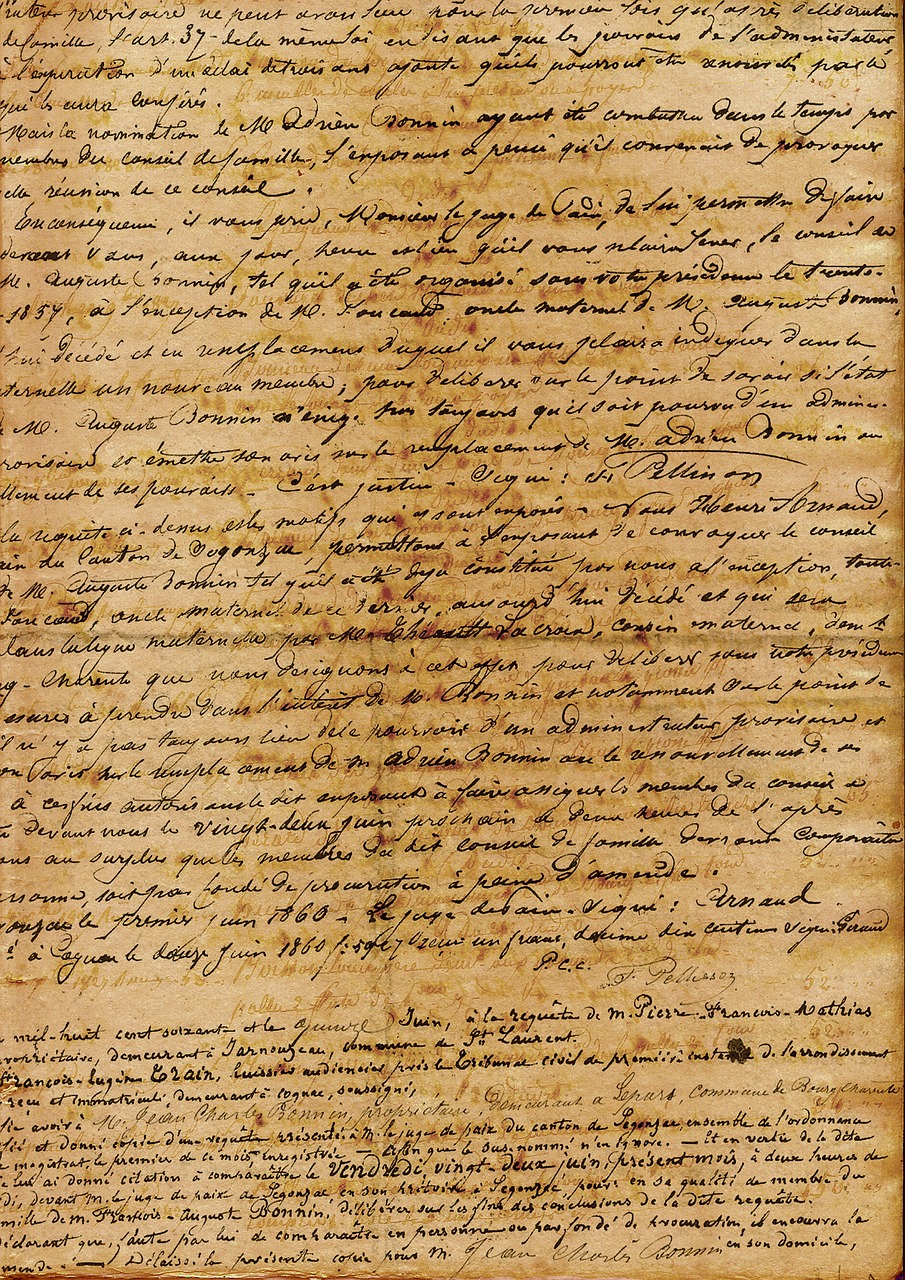 provisoire ne peut avoir lieu pour la première fois qu'après délibération
de famille, l'art. 37 de la même loi en disant que les pouvoirs de l'administrateur
à l'expiration d'un délai de trois ans ajoute qu'ils pourront être renouvelés par le
qui les aura conférés.
Mais la nomination de M Adrien Bonnin ayant été combattue dans le temps par
membres du conseil de famille, l'exposant a pensé qu'il convenait de provoquer
elle réunion de ce conseil.
En conséquence, il vous prie, Monsieur le juge de Paix, de lui permettre de faire
devant vous, aux jour, heure et lieu qu'il vous plaira fixer, le conseil de
M. Auguste Bonnin, tel qu'il a été organisé sous votre présidence le trente-
1857, à l'exception de M. Foucaud, oncle maternel de M. Auguste Bonnin,
hui décédé et en remplacement duquel il vous plaira indiquer dans la
ternelle un nouveau membre; pour délibérer sur le point de savoir si l'état
M. Auguste Bonnin n'exige pas toujours qu'il soit pourvu d'un adminis-
provisoire et émettre son avis sur le remplacement de M. Adrien Bonnin ou
llement de ses pouvoirs – C'est justice – Signé: F. Pellisson
la requête ci-dessus et les motifs qui y sont exposés – Nous Henri Arnaud,
aix du Canton de Segonzac, permettons à l'exposant de convoquer le conseil
de M. Auguste Bonnin tel qu'il a été déjà constitué par nous à l'exception, toute-
Foucaud, oncle maternel de ce dernier, aujourd'hui décédé et qui sera
dans la ligne maternelle par M. Lacroix, cousin maternel, demt
g-Charente que nous désignons à cet effet pour délibérer sous notre présidence
esures à prendre dans l'intérêt de M. Bonnin et notamment sur le point de
il n'y a pas toujours lieu de le pourvoir d'un administrateur provisoire et
on avis sur le remplacement de M. Adrien Bonnin ou le renouvellement de ses
à ces fins autorisons le dit exposant à faire assigner les membres du conseil à
devant nous le vingt-deux juin prochain à deux heures de l'après
ons au surplus que les membres du dit conseil de famille devront comparaître
ersonne, soit par fondé de procuration à peine d'amende.
onzac le premier juin 1860 – Le juge de paix – Signé: Arnaud
é à Cognac le douze juin 1860 Reçu un franc, décime dix centimes signé: Giraud
P.C.C.
F. Pellisson
mil-huit cent soixante et le quinze Juin, à la requête de M. Pierre-François-Mathias
propriétaire, demeurant à Jarnouzeau, commune de St Laurent.
François-Eugène Train, huissier audiencier près le Tribunal civil de première instance de l'arrondissement
reçu et immatriculé demeurant à Cognac, soussigné,
fié avoir à M. Jean Charles Bonnin, propriétaire, demeurant à Lepars, commune de Bourg Charente
fié et donné copie d'une requête présentée à M. le juge de paix du canton de Segonzac, ensemble de l'ordonnance
e magistrat, le premier de ce mois enregistrée – Afin que le susnommé n'en ignore. – Et en vertu de la dite
e lui ai donné citation à comparaître le Vendredi vingt-deux juin, présent mois, à deux heures de
di, devant M. le juge de paix de Segonzac, en son prétoire à Segonzac, pour, en sa qualité de membre du
mille de M. François-Auguste Bonnin, délibérer sur les fins des conclusions de la dite requête.
déclarant que, faute par lui de comparaître en personne ou par fondé de procuration, il encourra la
mende. – Délaissé la présente copie pour M. Jean Charles Bonnin en son domicile,